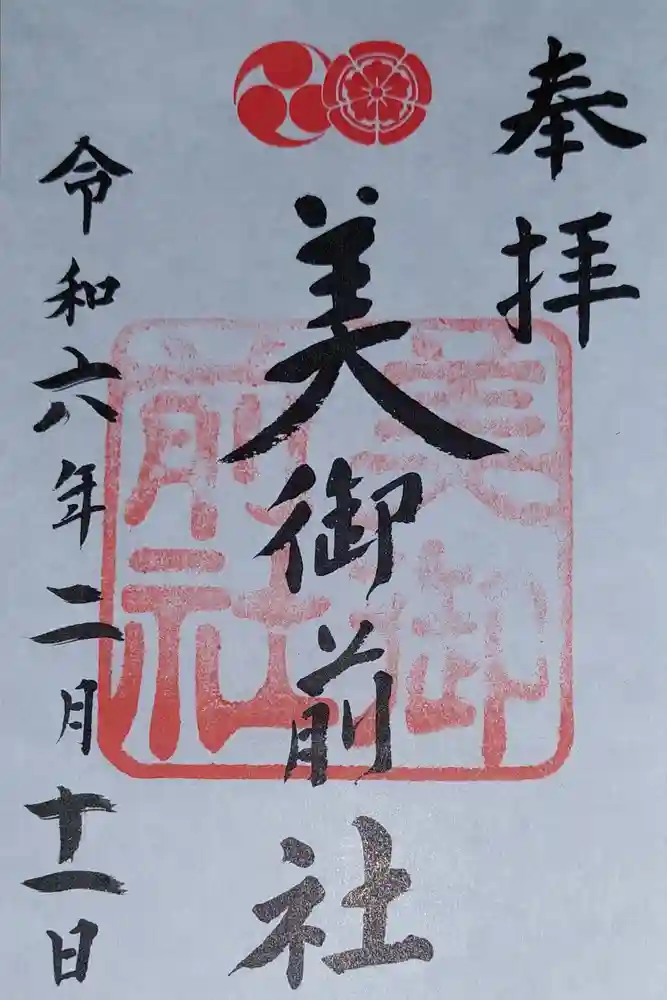 奉拝
美御前社
美御前社
令和六年二月十一日